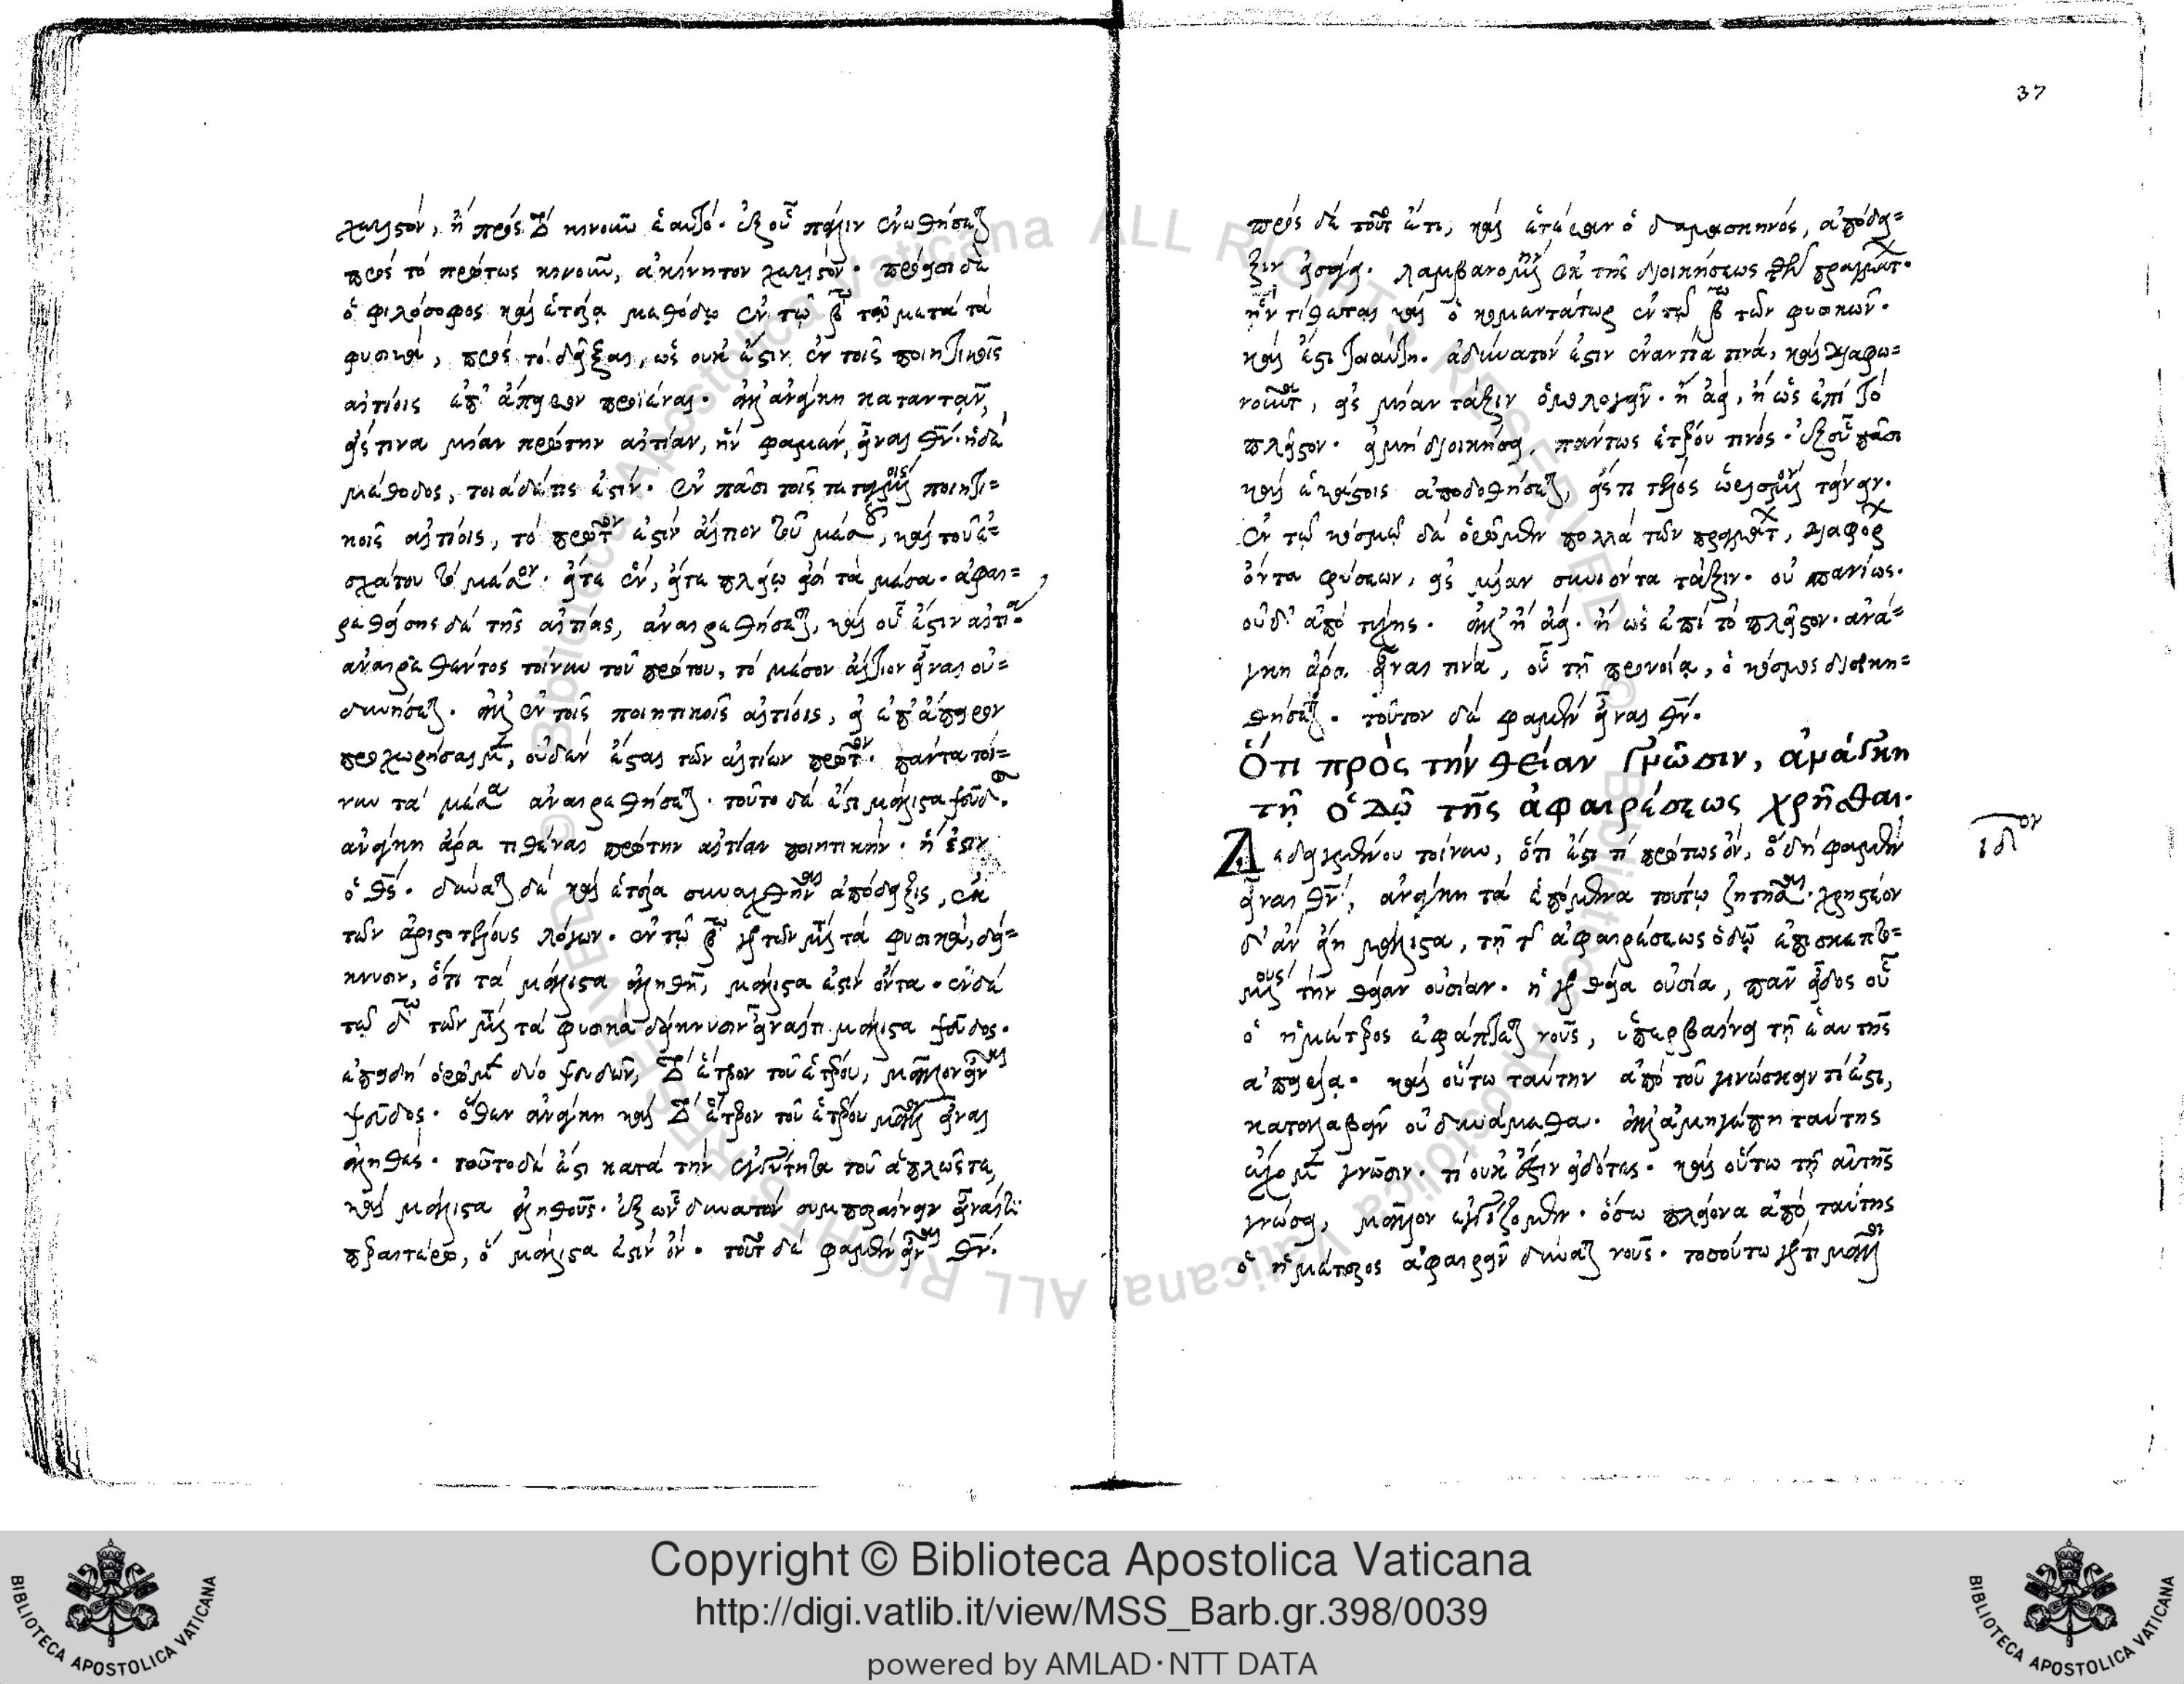 λεκτέον, ἢ πρὸς τὸ κινοῦν ἑαυτό. ἐξ οὗ πάλιν ἐνωθήσεται
πρὸς τὸ πρώτως κινοῦν, ἀκίνητον
ὁ φιλόσοφος καὶ ἑτέρᾳ μεθόδῳ ἐν τῷ βω τῶν μετὰ τὰ
φυσικά, πρὸς τὸ δεῖξαι, ὡς οὐκ ἔστιν ἐν τοῖς ποιητικοῖς
αἰτίοις ἐπ' ἄπειρον προϊέναι. ἀλλ' ἀνάγκη καταντᾶν,
εἴς τινα μίαν πρώτην αἰτίαν, ἣν φαμὲν, εἶναι θν. ἡ δὲ
μέθοδος, τοιάδε τις ἐστίν. ἐν πᾶσι τοῖς τεταγμένοις ποιητι=
κοῖς αἰτίοις, τὸ πρῶτον ἐστὶν αἴτιον τοῦ μέσου, καὶ τοῦ ἐ=
σχάτου τὸ μέσον. εἴτε ἓν, εἴτε πλείω εἴη τὰ μέσα. ἀφαι=
ρεθείσης δὲ τῆς αἰτίας, ἀναιρεθήσεται, καὶ οὗ ἐστιν αἰτία.
ἀναιρεθέντος τοίνυν τοῦ πρώτου, τὸ μέσον αἴτιον εἶναι οὐ
δυνήσεται. ἀλλ' ἐν τοῖς ποιητικοῖς αἰτίοις, εἰ ἐπ' ἄπειρον
προχωρήσαιμεν, οὐδὲν ἔσται τῶν αἰτίων πρῶτον. πάντα τοί=
νυν τὰ μέσα ἀναιρεθήσεται. τοῦτο δέ ἐστι μάλιστα ψεῦδος.
ἀνάγκη ἄρα τιθέναι πρώτην αἰτίαν ποιητικήν. ἥ ἐστιν
ὁ θς. δύναται δὲ καὶ ἑτέρα συναχθῆναι ἀπόδειξις, ἐκ
τῶν ἀριστοτέλους λόγων. ἐν τῷ βω γὰρ τῶν μετὰ τὰ φυσικά, δεί=
κνυσιν, ὅτι τὰ μάλιστα ἀληθῆ, μάλιστα ἐστὶν ὄντα. ἐν δὲ
τῷ δω τῶν μετὰ τὰ φυσικὰ δείκνυσιν εἶναί τι μάλιστα ψεῦδος.
ἐπειδὴ ὁρῶμεν δύο ψευδῶν, τὸ ἕτερον τοῦ ἑτέρου, μᾶλλον εἶναι
ψεῦδος. ὅθεν ἀνάγκη καὶ τὸ ἕτερον τοῦ ἑτέρου μᾶλλον εἶναι
ἀληθές. τοῦτο δέ ἐστι κατὰ τὴν ἐγγύτητα τοῦ ἁπλῶς τε,
καὶ μάλιστα ἀληθοῦς. ἐξ ὧν δυνατὸν συμπεραίνειν εἶναί τι
περαιτέρω, ὃ μάλιστα ἐστὶν ὄν. τοῦτο δὲ φαμὲν εἶναι θν.
37
πρὸς δὲ τοῦτο ἔτι, καὶ ἑτέραν ὁ δαμασκηνός, ἀπόδει=
ξιν εἰσάγει. λαμβανομένην ἐκ τῆς διοικήσεως τῶν πραγμάτων.
ἣν τίθεται καὶ ὁ κομεντάτωρ ἐν τῷ βω τῶν φυσικῶν.
καὶ ἔστι τοιαύτη. ἀδύνατόν ἐστιν ἐναντία τινὰ, καὶ διαφω=
νοῦντα, εἰς μίαν τάξιν ὁμολογεῖν. ἢ ἀεὶ, ἢ ὡς ἐπὶ τὸ
πλεῖστον. εἰ μὴ διοικήσει, πάντως ἑτέρου τινός. ἐξ οὗ πᾶσι
καὶ ἑκάστοις ἀποδοθήσεται, εἴς τι τέλος ὡρισμένον τείνειν.
ἐν τῷ κόσμῳ δὲ ὁρῶμεν πολλὰ τῶν πραγμάτων, διαφόρων
ὄντα φύσεων, εἰς μίαν συνιόντα τάξιν. οὐ σπανίως.
οὐδ' ἀπὸ τύχης. ἀλλ' ἢ ἀεὶ. ἢ ὡς ἐπὶ τὸ πλεῖστον. ἀνά=
γκη ἄρα εἶναι τινὰ, οὗ τῇ προνοίᾳ, ὁ κόσμος διοικη=
θήσεται. τοῦτον δὲ φαμὲν εἶναι θν.
Ὅτι πρὸς τὴν θείαν γνῶσιν, ἀνάγκη
τῇ ὁδῷ τῆς ἀφαιρέσεως χρῆσθαι.
ιδον
Δεδειγμένου τοίνυν, ὅτι ἔστι τὶ πρώτως ὂν, ὃ δὴ φαμὲν
εἶναι θν, ἀνάγκη τὰ ἑπόμενα τούτῳ ζητῆσαι. χρηστέον
δ' ἂν εἴη μάλιστα, τῇ τῆς ἀφαιρέσεως ὁδῷ ἐπισκεπτο=
μένους τὴν θείαν οὐσίαν. ἡ γὰρ θεία οὐσία, πᾶν εἶδος οὗ
ὁ ἡμέτερος ἐφάπτεται νοῦς, ὑπερβαίνει τῇ ἑαυτῆς
ἀπειρίᾳ. καὶ οὕτω ταύτην ἀπὸ τοῦ γινώσκειν τί ἐστι,
καταλαβεῖν οὐ δυνάμεθα. ἀλλ' ἀμηγέπη ταύτης
ἔχομεν γνῶσιν. τί οὐκ ἔστιν εἰδότες. καὶ οὕτω τῇ αὐτῆς
γνώσει, μᾶλλον ἐγγίζομεν. ὅσω πλείονα ἀπὸ ταύτης
ὁ ἡμέτερος ἀφαιρεῖν δύναται νοῦς. τοσούτω γάρ τι μᾶλλον
Copyright © Biblioteca Apostolica Vaticana
http://digi.vatlib.it/view/MSS_Barb.gr.398/0039
powered by AMLAD·NTT DATA
BIBLIOTECA APOSTOLICA VATICANA
BIBLIOTECA APOSTOLICA VATICANA